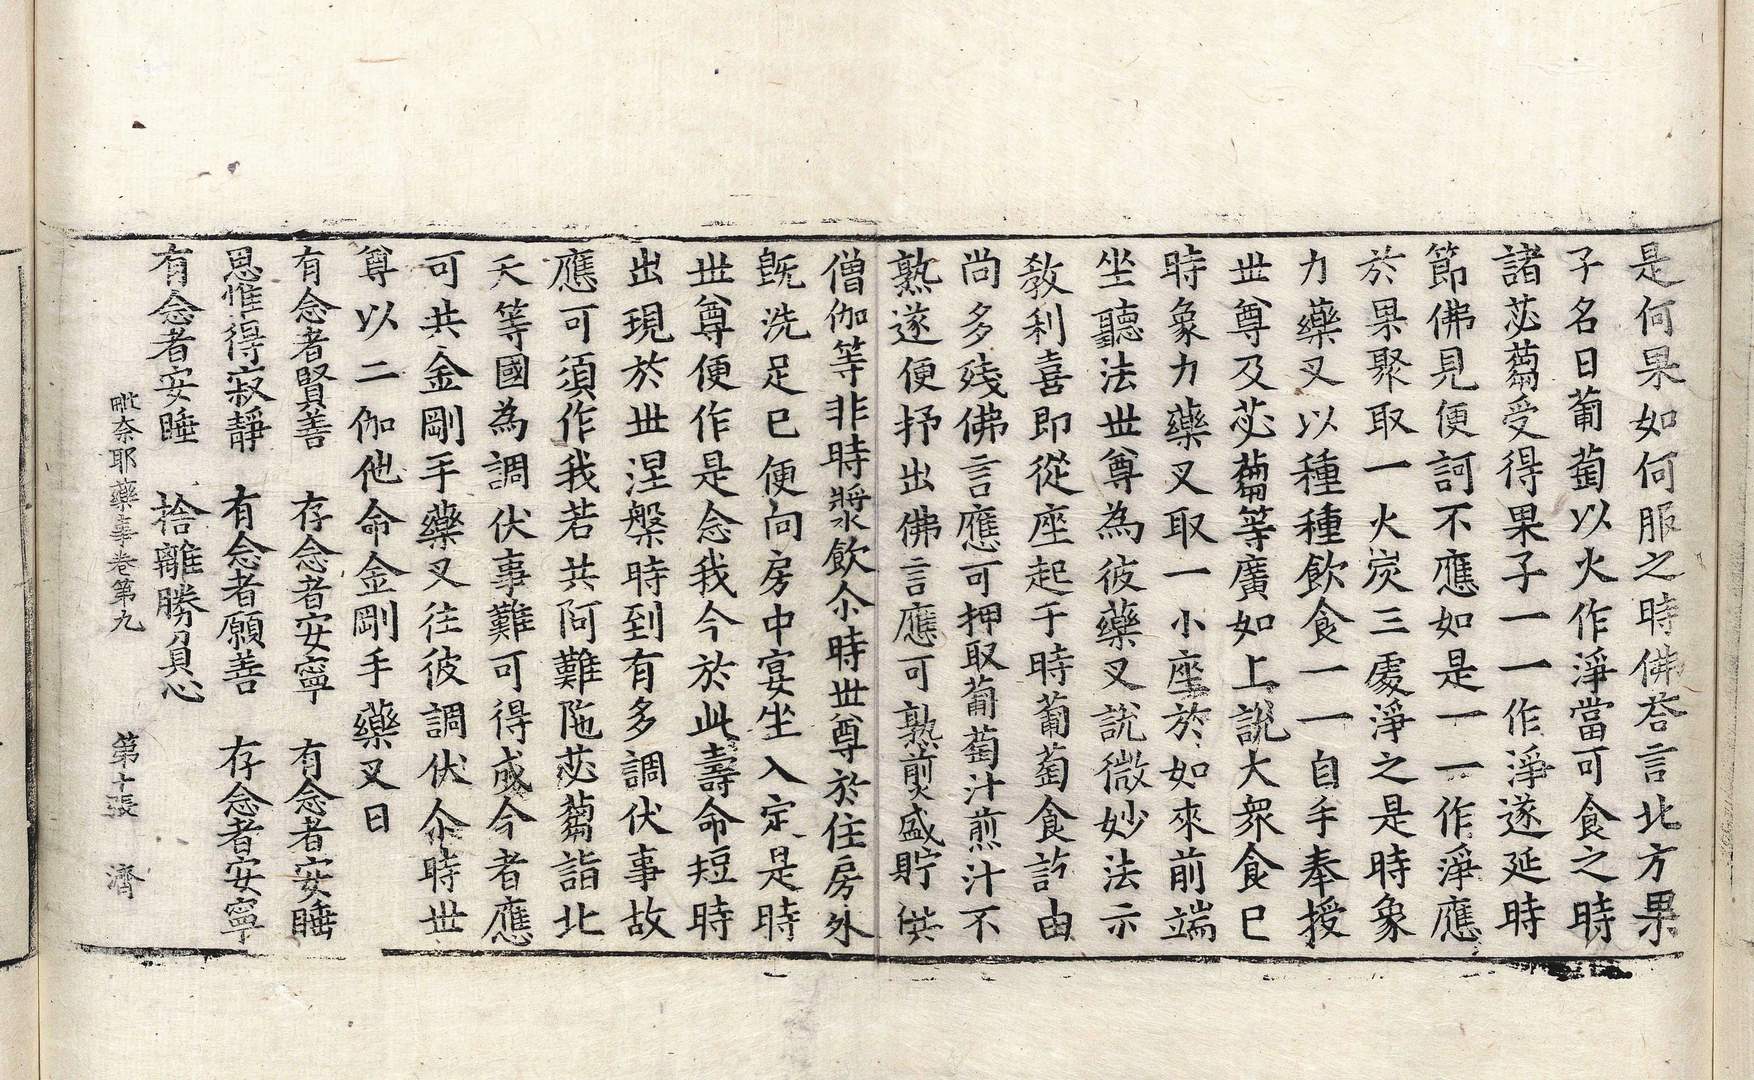 是何果如何服之時佛荅言北方果
子名曰葡萄以火作淨當可食之時
諸苾蒭受得果子一一作淨遂延時
節佛見便訶不應如是一一作淨應
於果聚取一火炭三處淨之是時象
力藥叉以種種飲食一一自手奉授
世尊及苾蒭等廣如上說大衆食已
時象力藥叉取一小座於如來前端
坐聽法世尊為彼藥叉說微妙法示
教利喜即從座起于時葡萄食訖由
尚多殘佛言應可押取葡萄汁煎汁不
熟遂便抒出佛言應可熟煎盛貯供
僧伽等非時漿飲尒時世尊於住房外
旣洗足已便向房中宴坐入定是時
世尊便作是念我今於此壽命短時
出現於世涅槃時到有多調伏事故
應可須作我若共阿難陁苾蒭詣北
天等國為調伏事難可得成今者應
可共金剛手藥叉往彼調伏尒時世
尊以二伽他命金剛手藥叉曰
有念者賢善　存念者安寧　有念者安睡
思惟得寂靜　有念者願善　存念者安寧
有念者安睡　捨離勝負心
毗奈耶藥事卷第九　第十張　濟